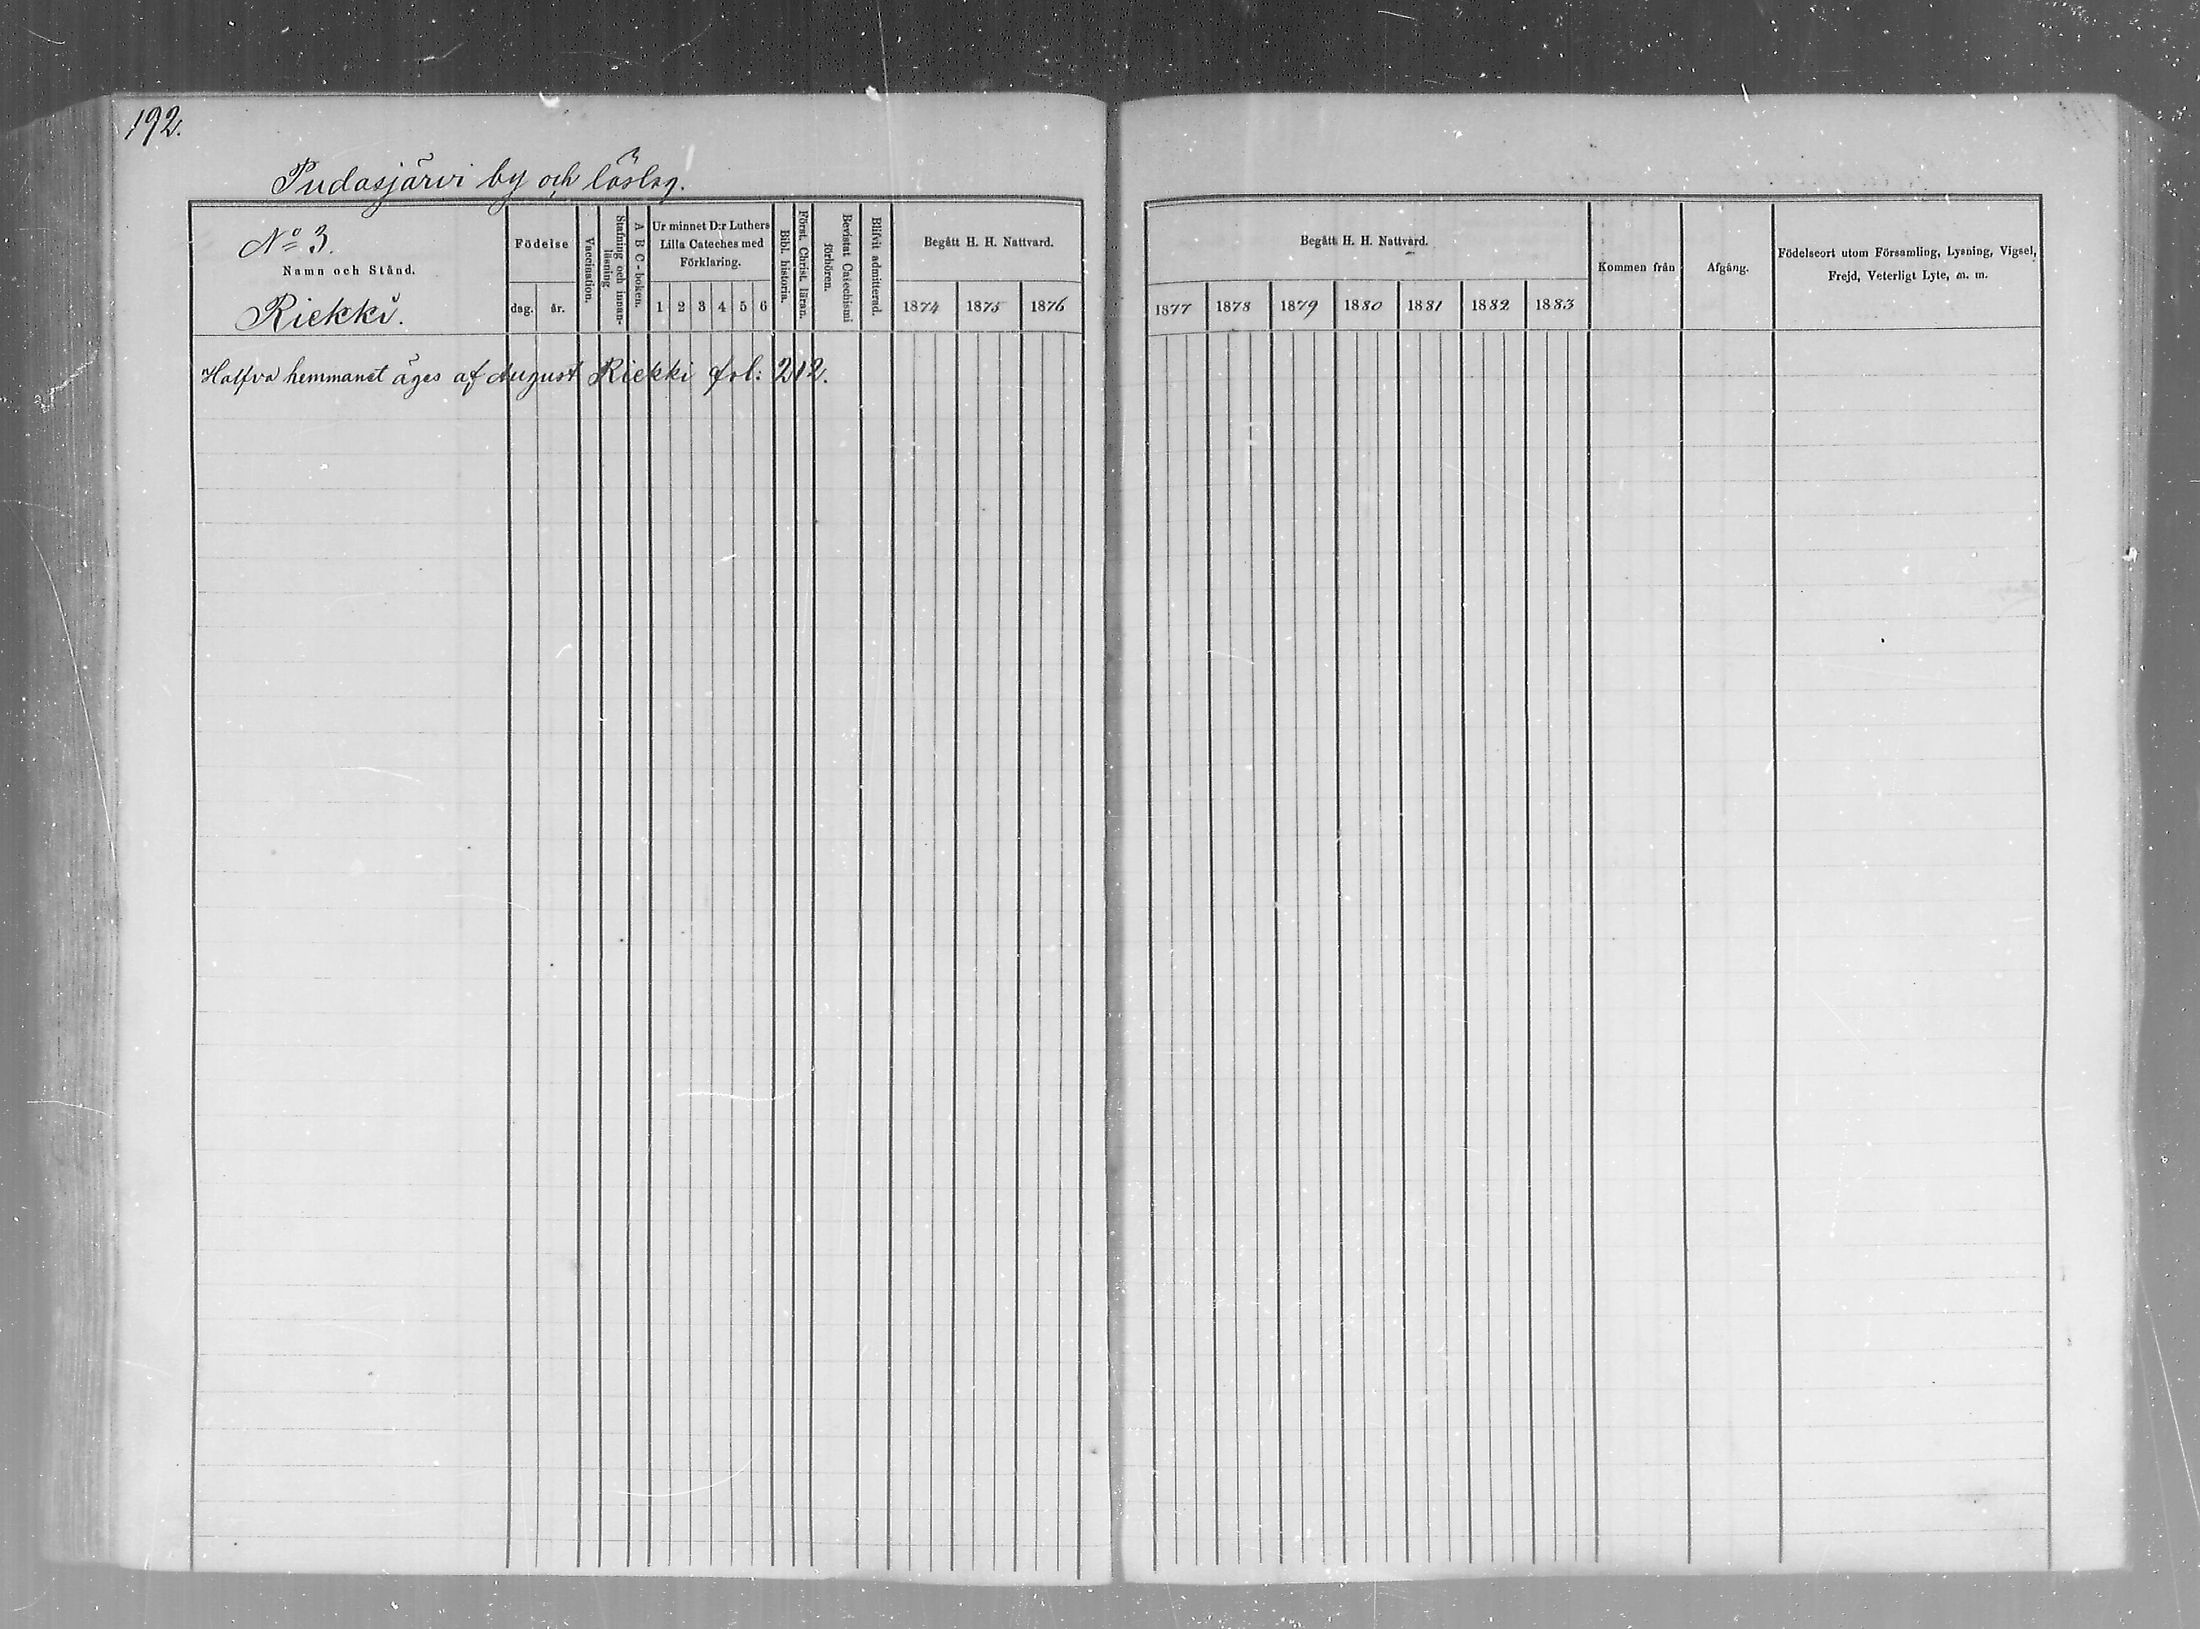 192.
Pudasjärvi by och läslag.
No 3.
Namn och Stånd.
Riekki.
Födelse
dag.
år.
Vaccination.
Stafning och innan-
läsning.
A B C-boken.
Ur minnet D:r Luthers
Lilla Cateches med
Förklaring.
1 2 3 4 5 6
Bibl. historia.
Först. Christ. läran.
Bevistat Catechismi
förhören.
Blifvit admitterad.
Begått H. H. Nattvard.
1874 1875 1876
Begått H. H. Nattvard.
1877 1878 1879 1880 1881 1882 1883
Kommen från
Afgång.
Födelseort utom Församling, Lysning, Vigsel,
Frejd, Veterligt Lyte, m. m.
Halfva hemmanet äges af August Riekki fol: 212.